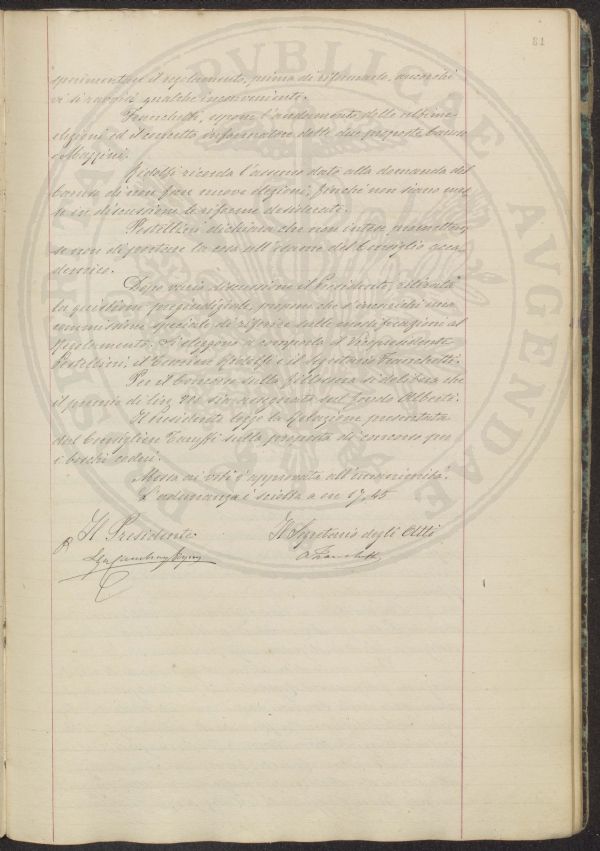 81
sperimentare il regolamento, prima di riformarlo, ancorché
vi si ravvisi qualche inconveniente.
Franchetti, espone l'andamento delle ultime
elezioni ed il concetto informatore delle due proposte
e Mazzini.
Ridolfi ricorda l'assenso dato alla domanda del
di non fare nuove elezioni, finché non siano
in discussione le riforme desiderate.
Pestellini dichiara che non intese promettere
se non di portare la cosa all'esame del Consiglio acca
demico.
Dopo varia discussione il Presidente,
la questione pregiudiziale, propone che s'incarichi una
commissione speciale di riferire sulle modificazioni al
Regolamento. Si eleggono a comporla il Vicepresidente
Pestellini, il Ridolfi e il Segretario Franchetti.
Per il Concorso sulla fillossera si delibera che
il premio di lire sia assegnato sul fondo Alberti.
Il Presidente legge la Relazione presentata
dal Consigliere sulla proposta di concorso per
i boschi cedui.
Messa ai voti è approvata all'unanimità.
L'adunanza è sciolta a ore 17,45
Il Presidente
Il Segretario degli Atti
A. Franchetti
PUBLICAE
AUGENDAE